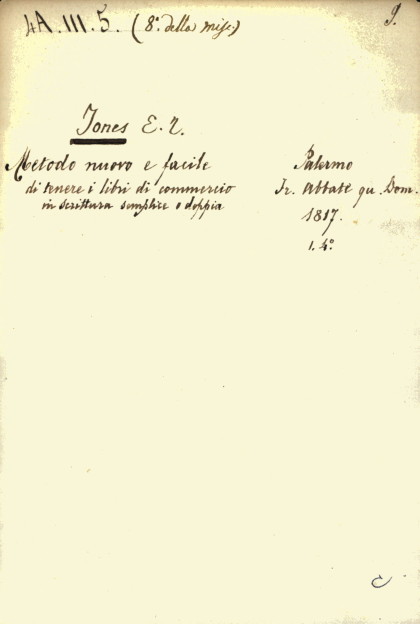 4A.III.5. (8º della misc.)
9.
Jones E. T.
Metodo nuovo e facile
di tenere i libri di commercio
in scrittura semplice o doppia
Palermo
Fr. Abbate qu. Dom.
1817.
1. 4º
C